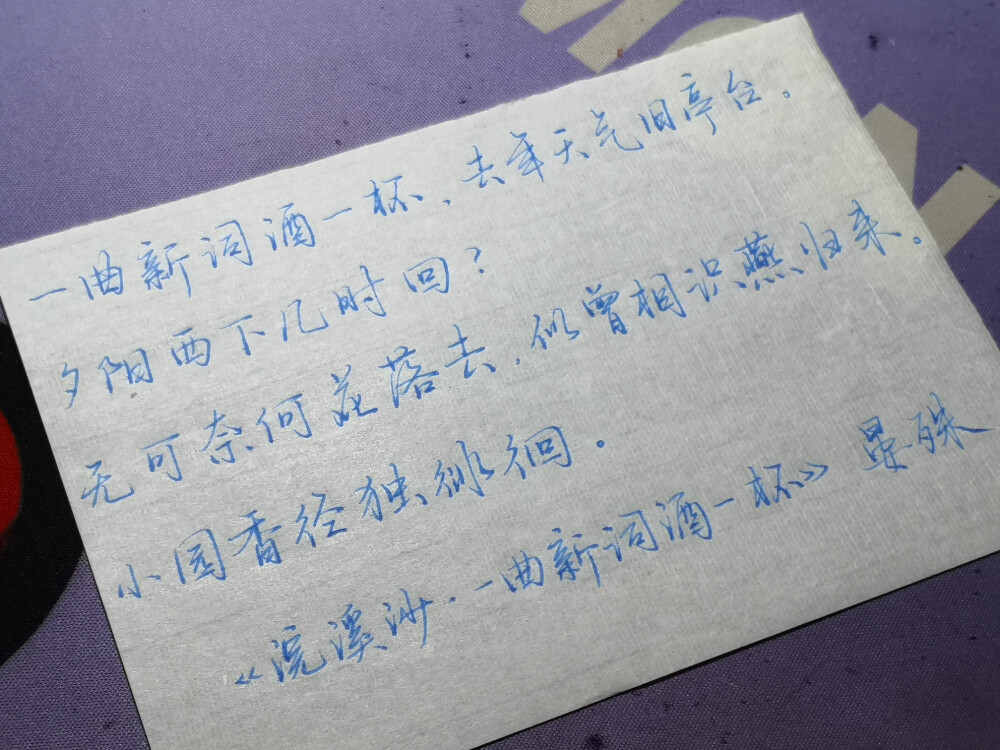 一曲新词酒一杯、去年天气旧亭台。
夕阳西下几时回？
无可奈何花落去，似曾相识燕归来。
小园香径独徘徊。
《浣溪沙·一曲新词酒一杯》晏殊